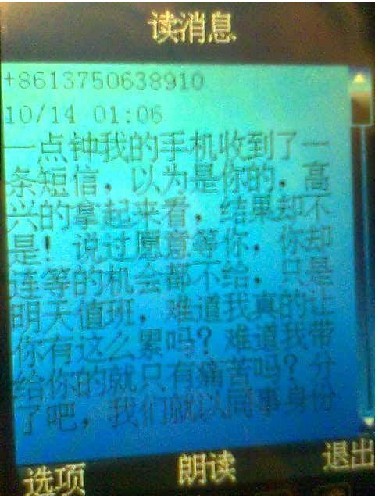 读消息
+8613750638910
10/14 01:06
一点钟我的手机收到了一
条短信，以为是你的，高
兴的拿起来看，结果却不
是！说过愿意等你，你却
连等的机会都不给，只是
明天值班，难道我真的让
你有这么累吗？难道我带
给你的就只有痛苦吗？分
了吧，我们就以同事身份
选项 朗读 退出